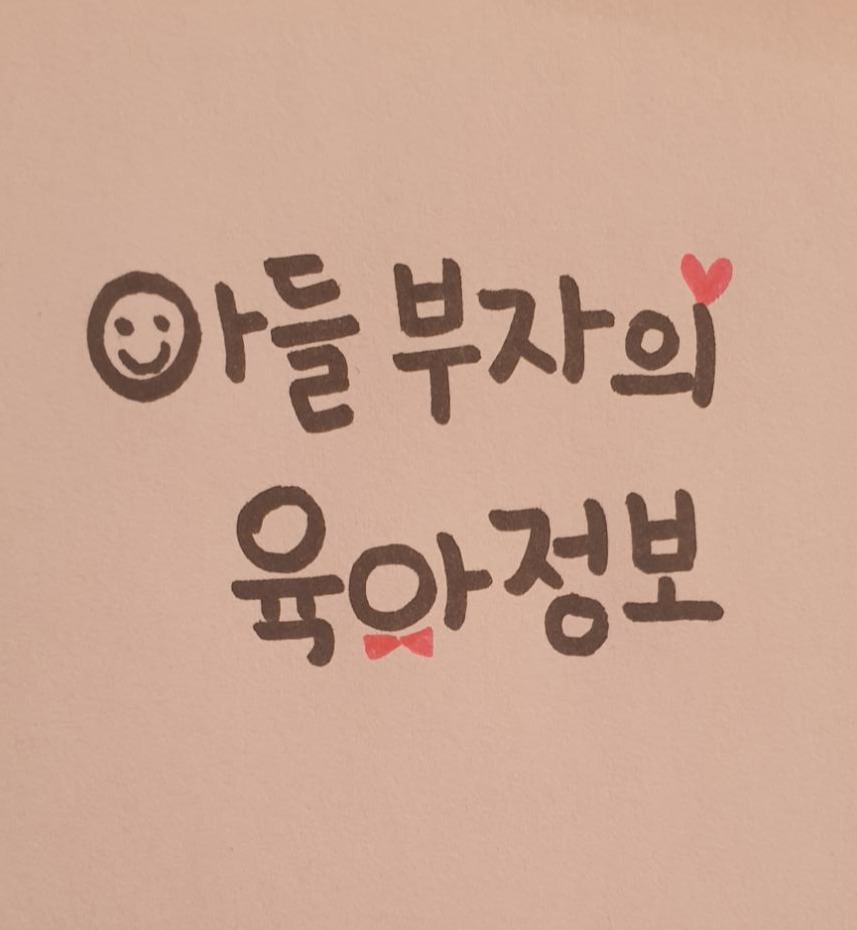 아들부자의
육아정보